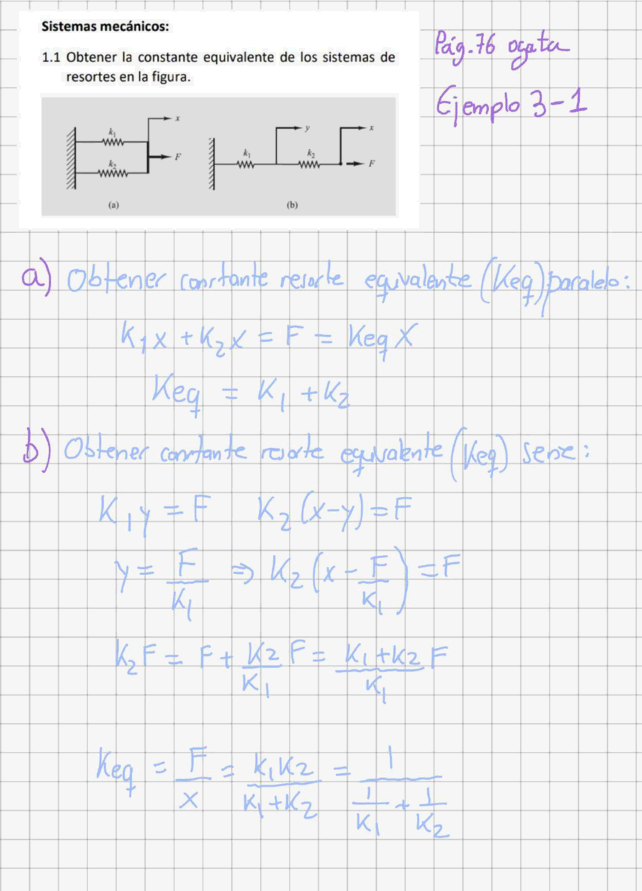 Sistemas mecánicos:
Pág. 76 ogata
1.1 Obtener la constante equivalente de los sistemas de
resortes en la figura.
Ejemplo 3-1
k₁ x
k₂ F
(a)
y x
k₁ k₂ F
(b)
a) Obtener constante resorte equivalente (Keq) paralelo:
K₁x + K₂x = F = Keq X
Keq = K₁ + K₂
b) Obtener constante resorte equivalente (Keq) serie:
K₁y = F K₂(x-y) = F
y = F/K₁ ⇒ K₂(x - F/K₁) = F
K₂F = F + K2/K₁ F = K₁+K2/K₁ F
Keq = F/x = K₁K2/K₁+K₂ = 1/(1/K₁ + 1/K₂)